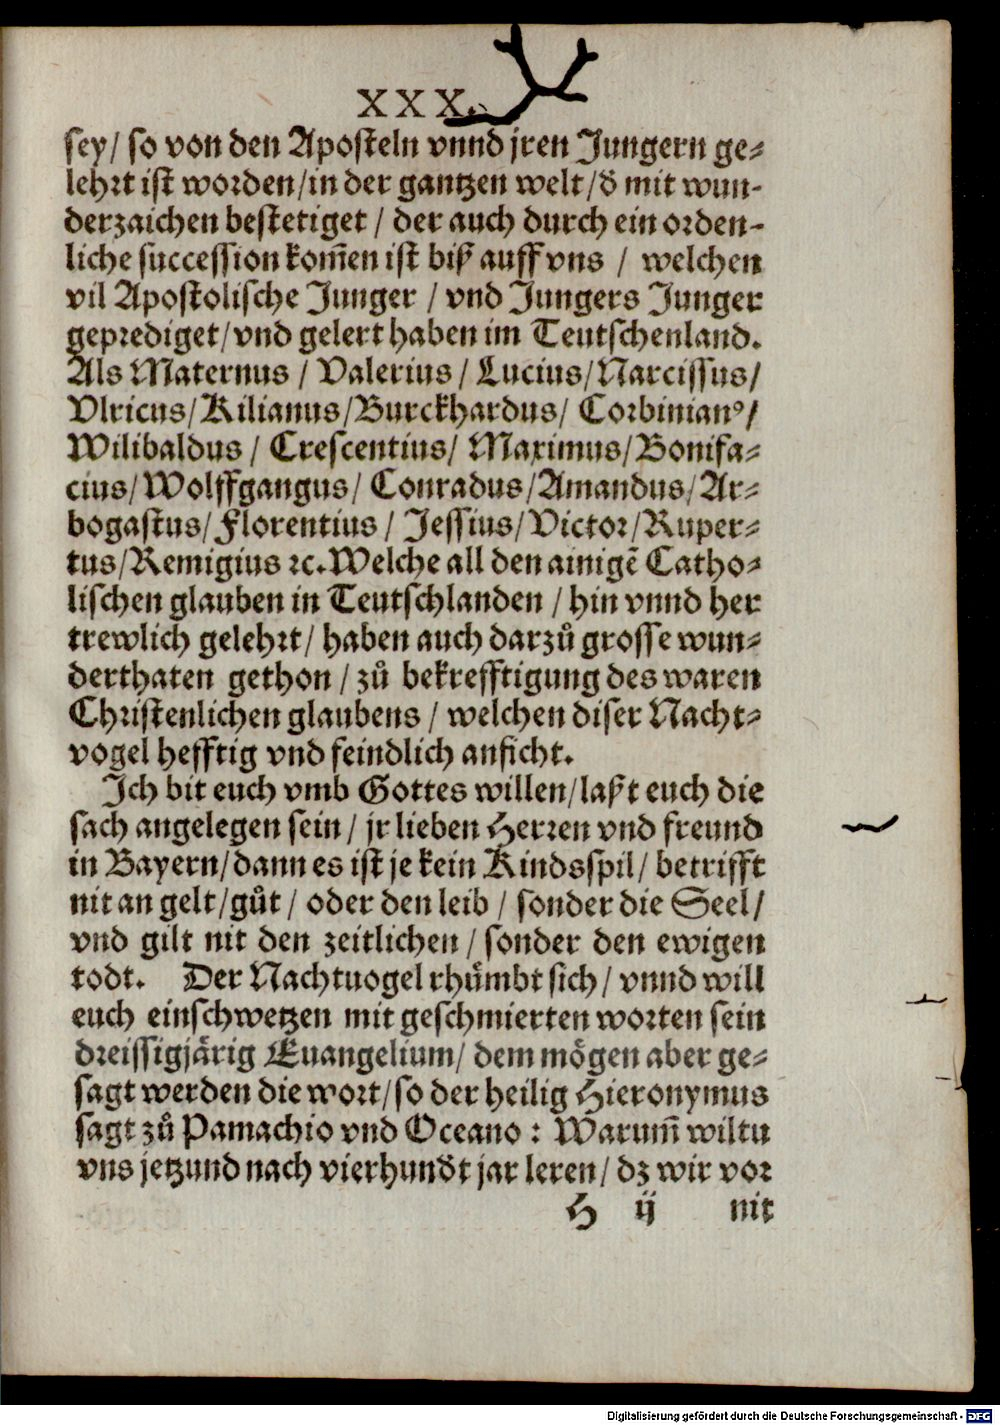 XXX.
sey/ so von den Aposteln vnnd jren Jungern ge⸗
lehrt ist worden/in der gantzen welt/ď mit wun-
derzaichen bestetiget / der auch durch ein orden-
liche succession kom̃en ist biß auff vns / welchen
vil Apostolische Junger / vnd Jungers Junger
geprediget/vnd gelert haben im Teutschenland.
Als Maternus / Valerius / Lucius/Narcissus/
Vlricus/Kilianus/Burckhardus/ Corbinianꝰ/
Wilibaldus / Crescentius/ Maximus/Bonifa⸗
cius/Wolffgangus/ Conradus/Amandus/Ar⸗
bogastus/Florentius / Jessius/Victor/Ruper⸗
tus/Remigius ꝛc.Welche all den ainigẽ Catho⸗
lischen glauben in Teutschlanden / hin vnnd her
trewlich gelehrt/ haben auch darzů grosse wun⸗
derthaten gethon / zů bekrefftigung des waren
Christenlichen glaubens / welchen diser Nacht⸗
vogel hefftig vnd feindlich anficht.
Ich bit euch vmb Gottes willen/laßt euch die
sach angelegen sein / jr lieben Herren vnd freund
in Bayern/dann es ist je kein Kindsspil/ betrifft
nit an gelt/gůt / oder den leib / sonder die Seel/
vnd gilt nit den zeitlichen / sonder den ewigen
todt. Der Nachtuogel rhůmbt sich / vnnd will
euch einschwetzen mit geschmierten worten sein
dreissigjärig Euangelium/ dem mögen aber ge⸗
sagt werden die wort/so der heilig Hieronymus
sagt zů Pamachio vnd Oceano : Warum̃ wiltu
vns jetzund nach vierhundďt jar leren/ dz wir vor
H ij nit
Digitalisierung gefördert durch die Deutsche Forschungsgemeinschaft - DFG